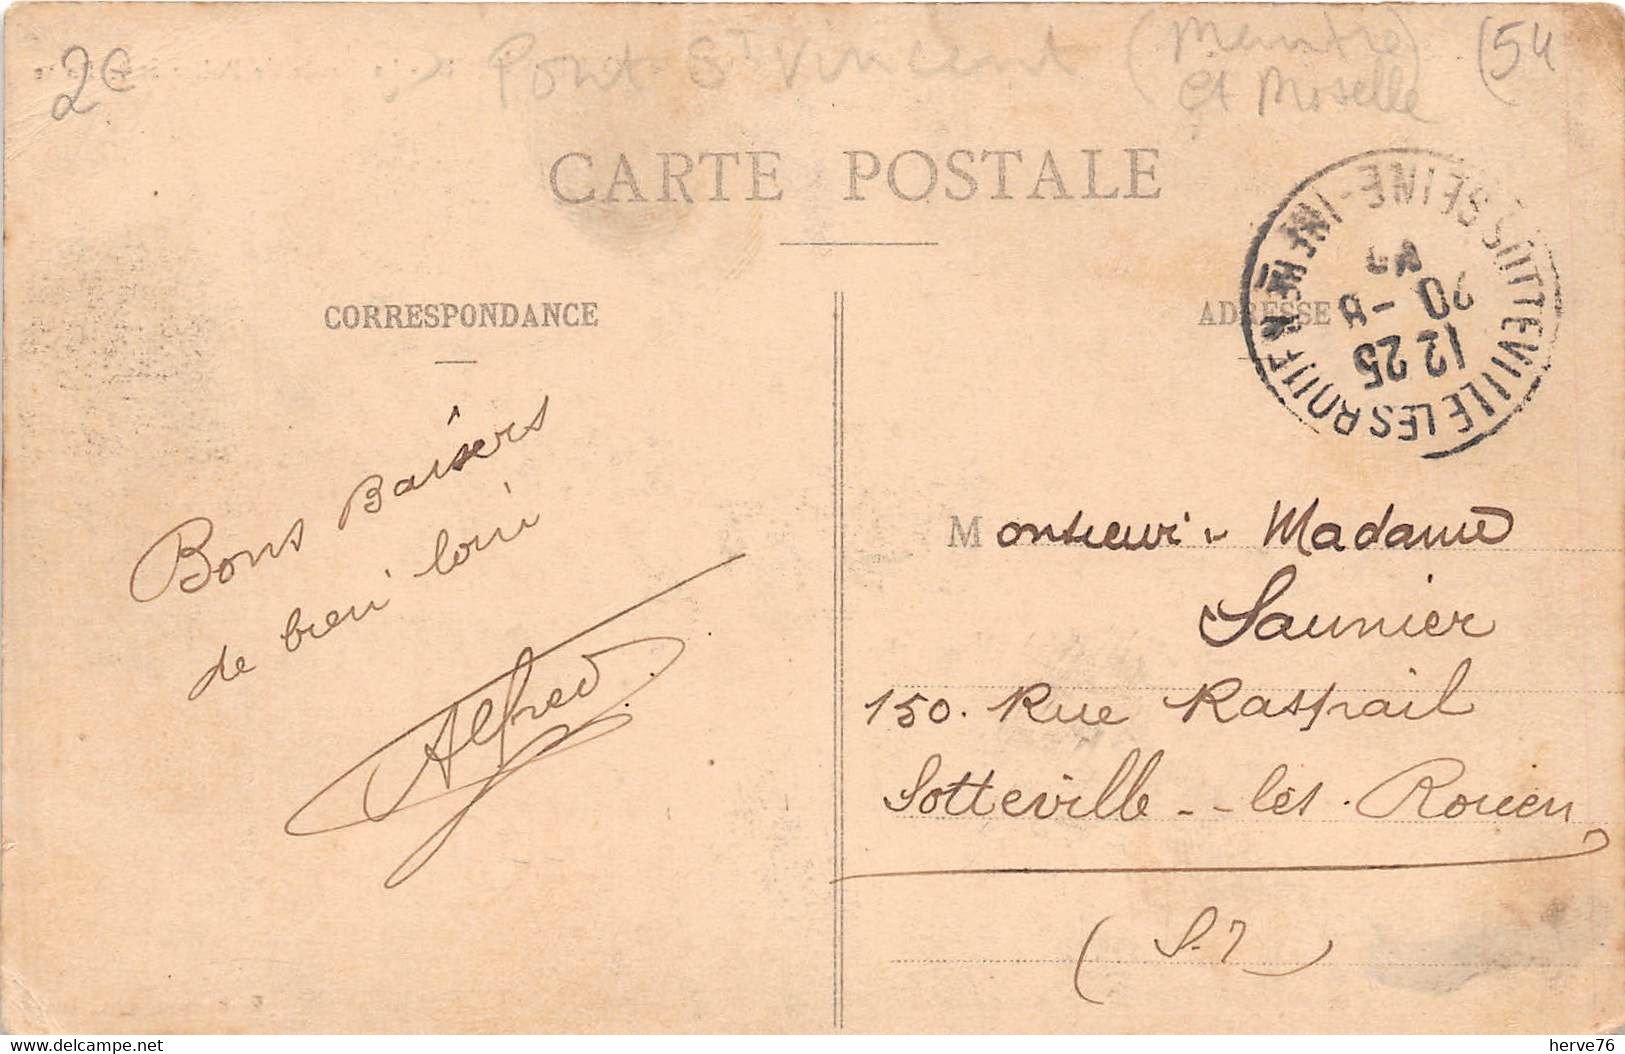 2€
Pont St Vincent (Meurthe
et Moselle)
(54
CARTE POSTALE
CORRESPONDANCE
ADRESSE
SOTTEVILLE LES ROUEN
SEINE-INFRE
12 25
20 -8
Bons Baisers
de bien loin
Alfred
Monsieur " Madame
Saunier
150. Rue Raspail
Sotteville -- lès. Rouen
(S. I)
www.delcampe.net
herve76